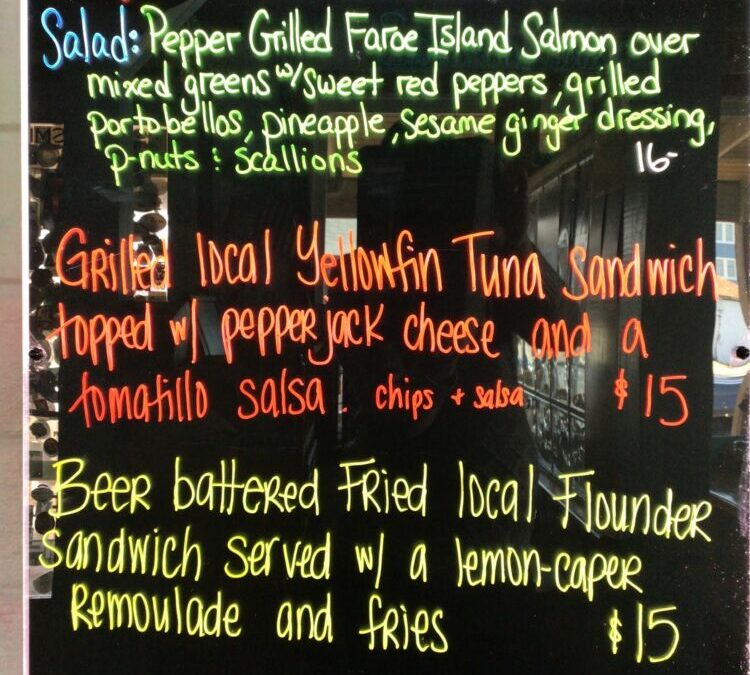 Salad: Pepper Grilled Faroe Island Salmon over
mixed greens w/sweet red peppers, grilled
portobellos, pineapple, sesame ginger dressing,
p-nuts & scallions 16-
Grilled local Yellowfin Tuna Sandwich
topped w/ pepperjack cheese and a
tomatillo salsa. chips + salsa $15
Beer battered Fried local Flounder
Sandwich served w/ a lemon-caper
Remoulade and fries $15